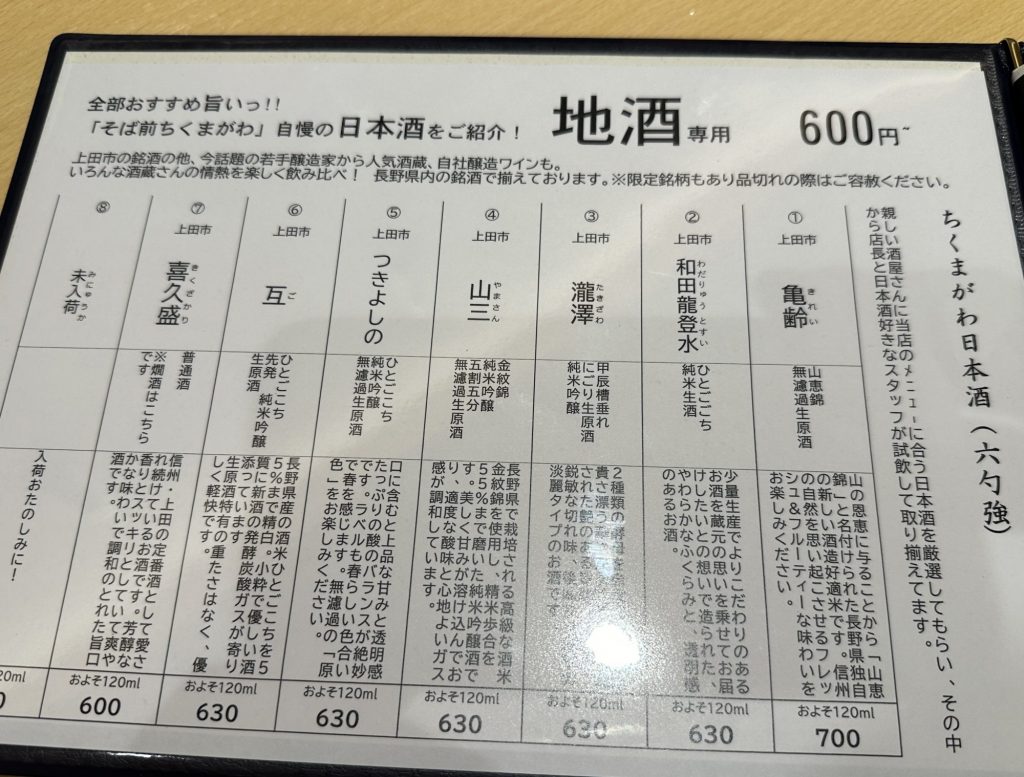 全部おすすめ旨いっ!!
「そば前ちくまがわ」自慢の日本酒をご紹介!
地酒専用 600円~
上田市の銘酒の他、今話題の若手醸造家から人気酒蔵、自社醸造ワインも。
いろんな酒蔵さんの情熱を楽しく飲み比べ! 長野県内の銘酒で揃えております。※限定銘柄もあり品切れの際はご容赦ください。
ちくまがわ日本酒(六勺強)
親しい酒屋さんに当店のメニューに合う日本酒を厳選してもらい、その中
から店長と日本酒好きなスタッフが試飲して取り揃えてます。
①
上田市
亀齢
きれい
山恵錦
無濾過生原酒
山の恩恵に与ることから「山恵
錦」と名付けられた長野県独自
の新しい酒造好適米です。信州
の自然を思い起こさせるフレッ
シュ&フルーティーな味わいを
お楽しみください。
およそ120ml
700
②
上田市
和田龍登水
わだりゅう とすい
ひとごごち
純米生酒
少量生産でよりこだわりのある
お酒を蔵元の思いを乗せてお届
けしたいとの想いで造られた、
やわらかなふくらみと、透明感
のあるお酒。
およそ120ml
630
③
上田市
瀧澤
たきざわ
甲辰槽垂れ
にごり生原酒
純米吟醸
2種類の
貴さ漂う
された艶のある
鋭敏な切れ味、後
淡麗タイプのお酒です
およそ120ml
630
④
上田市
山三
やまさん
金紋錦
純米吟醸
五割五分
無濾過生原酒
長野県で栽培される高級な酒米
金紋錦を使用し、精米歩合を
55%まで磨いた純米吟醸酒で
す。美しく甘みが溶け込んでお
り、適度な酸味と心地よいガス
感が調和しています。
およそ120ml
630
⑤
上田市
つきよしの
ひとごこち
純米吟醸
無濾過生原酒
口に含むと上品な甘みと透明感
たっぷりの酸のバランスが絶妙
です。ラベルも春らしい色合い
で春を感じます。無濾過の「原
色」をお楽しみください。
およそ120ml
630
⑥
上田市
互
ご
ひとごこち
先発 純米吟醸
生原酒
長野県産の酒米ひとごこちを5
5%まで精白。小粋で優しい酒
質に新酒の発酵炭酸ガスが寄り
添っています。
生原酒特有の重たさはなく、優
しく軽快です。
およそ120ml
630
⑦
上田市
喜久盛
きくざかり
普通酒
※燗酒はこちら
です
信州・上田の定番酒として愛さ
れ続けているお酒です。芳醇な
香りとスッキリとしていて爽や
かな味わいで調和のとれた旨口
酒です。
およそ120ml
630
⑧
未入荷
みにゅうか
入荷おたのしみに!
およそ120ml
600
20ml
0